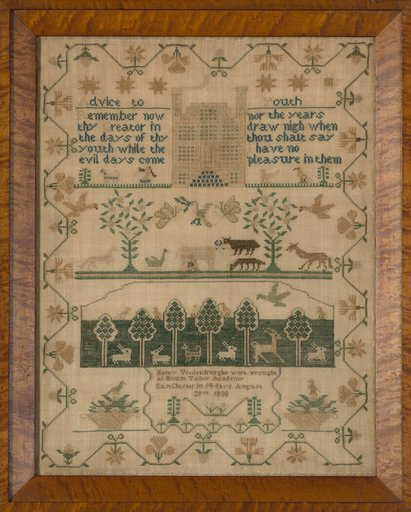 dvice to outh
emember now
thy reator in
the days of thy
youth while the
evil days come
nor the years
draw nigh when
thou shalt say
have no
pleasure in them
Vredenburghs work wrought
at Tabor Academy
EastChester in 14 days August
29th 1828